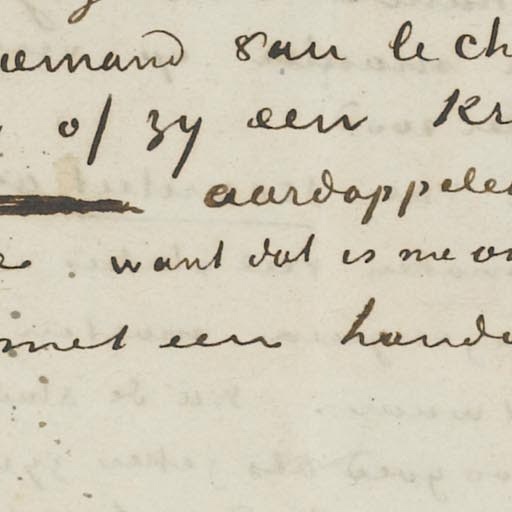 aemand van le ch
of zy een Kr
aardappele
want dat is me
met een hand